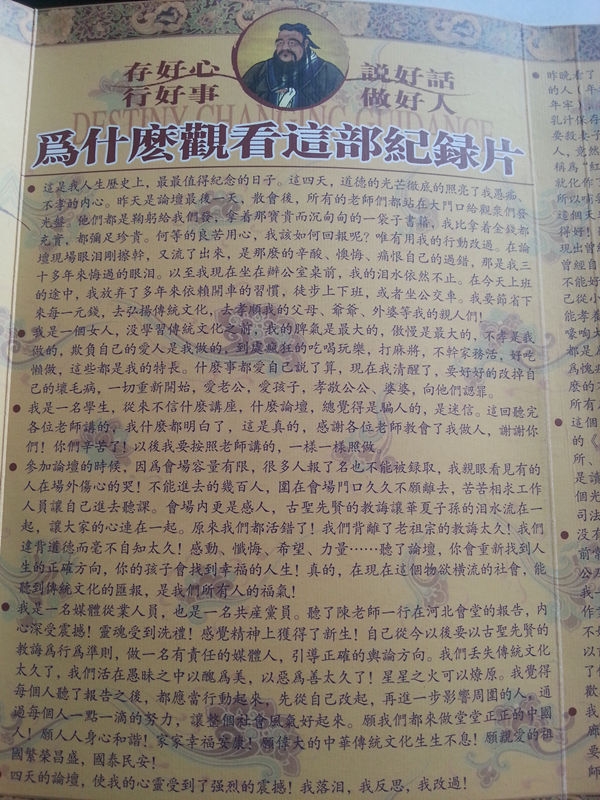 存好心
行好事
說好話
做好人
DESTINY CHANGING GUIDANCE
爲什麽觀看這部紀録片
● 這是我人生歷史上，最最值得紀念的日子。這四天，道德的光芒徹底的照亮了我愚痴、
不孝的内心。昨天是論壇最後一天，散會後，所有的老師們都站在大門口給觀衆們發
光盤。他們都是鞠躬給我們發，拿着那寶貴而沉甸甸的一袋子書籍，我比拿着金錢都
充實，都彌足珍貴。何等的良苦用心，我該如何回報呢？唯有用我的行動改過。在論
壇現場眼泪剛擦幹，又流了出來，是那麽的辛酸、懊悔、痛恨自己的過錯，那是我三
十多年來悔過的眼泪。以至我現在坐在辦公室桌前，我的泪水依然不止。在今天上班
的途中，我放弃了多年來依賴開車的習慣，徒步上下班，或者坐公交車。我要節省下
來每一元錢，去弘揚傳統文化，去孝順我的父母、爺爺、外婆等我的親人們！
● 我是一個女人，没學習傳統文化之前，我的脾氣是最大的，傲慢是最大的，不孝是我
做的，欺負自己的愛人是我做的，到處瘋狂的吃喝玩樂，打麻將，不幹家務活，好吃
懶做，這些都是我的特長。什麽事都愛自己説了算，現在我清醒了，要好好的改掉自
己的壞毛病，一切重新開始，愛老公，愛孩子，孝敬公公、婆婆，向他們認罪。
● 我是一名學生，從來不信什麽講座，什麽論壇，總覺得是騙人的，是迷信。這回聽完
各位老師講的，我什麽都明白了，這是真的，感謝各位老師教會了我做人，謝謝你
們！你們辛苦了！以後我要按照老師講的，一樣一樣照做。
● 參加論壇的時候，因爲會場容量有限，很多人報了名也不能被録取，我親眼看見有的
人在場外傷心的哭！不能進去的幾百人，圍在會場門口久久不願離去，苦苦相求工作
人員讓自己進去聽課。會場内更是感人，古聖先賢的教誨讓華夏子孫的泪水流在一
起，讓大家的心連在一起。原來我們都活錯了！我們背離了老祖宗的教誨太久！我們
違背道德而毫不自知太久！感動、懺悔、希望、力量……聽了論壇，你會重新找到人
生的正確方向，你的孩子會找到幸福的人生！真的，在現在這個物欲橫流的社會，能
聽到傳統文化的匯報，是我們所有人的福氣！
● 我是一名媒體從業人員，也是一名共産黨員。聽了陳老師一行在河北會堂的報告，内
心深受震撼！靈魂受到洗禮！感覺精神上獲得了新生！自己從今以後要以古聖先賢的
教誨爲行爲準則，做一名有責任的媒體人，引導正確的輿論方向。我們丢失傳統文化
太久了，我們活在愚昧之中以醜爲美，以惡爲善太久了！星星之火可以燎原。我覺得
每個人聽了報告之後，都應當行動起來，先從自己改起，再進一步影響周圍的人。通
過每個人一點一滴的努力，讓整個社會風氣好起來。願我們都來做堂堂正正的中國
人！願人人身心和諧！家家幸福安康！願偉大的中華傳統文化生生不息！願親愛的祖
國繁榮昌盛，國泰民安！
● 四天的論壇，使我的心靈受到了强烈的震撼！我落泪，我反思，我改過！